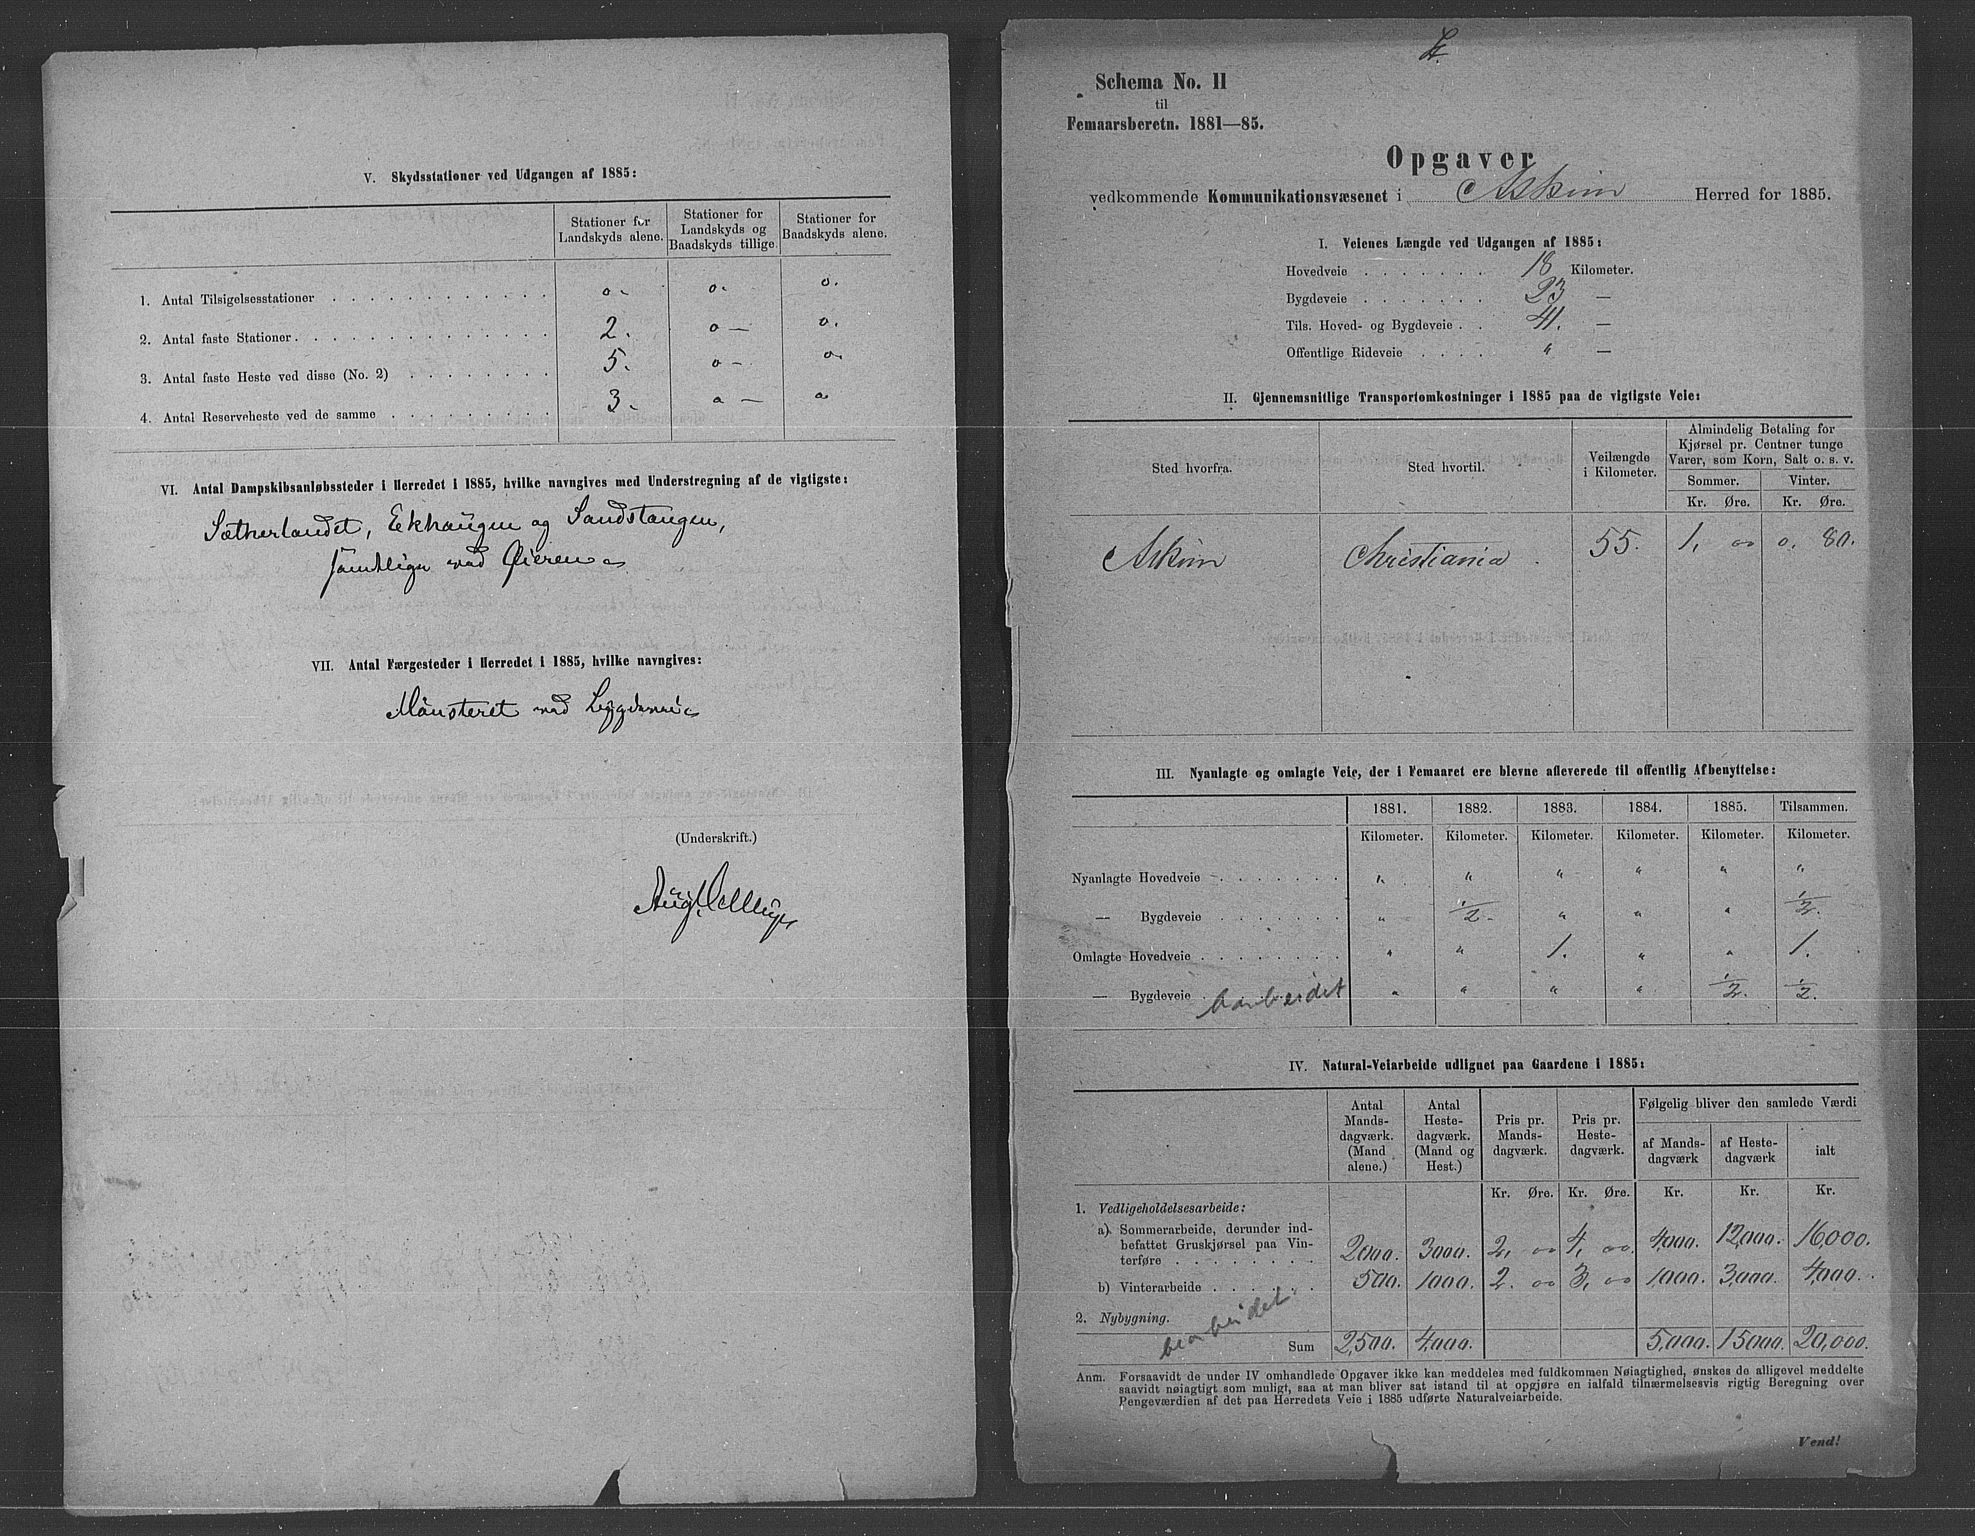 V. Skydsstationer ved Udgangen af 1885:
Stationer for Landskyds alene. Stationer for Landskyds og Baadskyds tillige. Stationer for Baadskyds alene.
1. Antal Tilsigelsesstationer o. o. o.
2. Antal faste Stationer 2. o — o.
3. Antal faste Heste ved disse (No. 2) 5. o — o.
4. Antal Reserveheste ved de samme 3. o — o
VI. Antal Dampskibsanløbssteder i Herredet i 1885, hvilke navngives med Understregning af de vigtigste:
Sætherlandet, Eekhaugen og Sandstangen,
samtlige ved Øieren.
VII. Antal Færgesteder i Herredet i 1885, hvilke navngives:
Mønsteret ved
(Underskrift.)
Schema No. II
til
Femaarsberetn. 1881—85.
Opgaver
vedkommende Kommunikationsvæsenet i Askim Herred for 1885.
I. Veienes Længde ved Udgangen af 1885:
Hovedveie 18 Kilometer.
Bygdeveie 23 —
Tils. Hoved- og Bygdeveie 41. —
Offentlige Rideveie " —
II. Gjennemsnitlige Transportomkostninger i 1885 paa de vigtigste Veie:
Sted hvorfra. Sted hvortil. Veilængde i Kilometer. Almindelig Betaling for Kjørsel pr. Centner tunge Varer, som Korn, Salt o. s. v.
Sommer. Vinter.
Kr. Øre. Kr. Øre.
Askim Christiania 55. 1, 00 0. 80.
III. Nyanlagte og omlagte Veie, der i Femaaret ere blevne afleverede til offentlig Afbenyttelse:
1881. 1882. 1883. 1884. 1885. Tilsammen.
Kilometer. Kilometer. Kilometer. Kilometer. Kilometer. Kilometer.
Nyanlagte Hovedveie " " " " " "
— Bygdeveie " 1/2. " " " 1/2.
Omlagte Hovedveie " " 1. " " 1.
— Bygdeveie " " " " 1/2. 1/2.
bearbeidet
IV. Natural-Veiarbeide udlignet paa Gaardene i 1885:
Antal Mandsdagværk. (Mand alene.) Antal Hestedagværk. (Mand og Hest.) Pris pr. Mandsdagværk. Pris pr. Hestedagværk. Følgelig bliver den samlede Værdi
af Mandsdagværk af Hestedagværk ialt
Kr. Øre. Kr. Øre. Kr. Kr. Kr.
1. Vedligeholdelsesarbeide:
a) Sommerarbeide, derunder indbefattet
Gruskjørsel paa Vinterføre 2000. 3000. 2, 00 4, 00. 4,000. 12,000. 16000.
b) Vinterarbeide 500. 1000. 2. 00 3, 00 1000. 3,000. 4,000.
2. Nybygning.
bearbeidet
Sum 2,500. 4,000. 5,000. 15000. 20,000.
Anm. Forsaavidt de under IV omhandlede Opgaver ikke kan meddeles med fuldkommen Nøiagtighed, ønskes de alligevel meddelte
saavidt nøiagtigt som muligt, saa at man bliver sat istand til at opgjøre en ialfald tilnærmelsesvis rigtig Beregning over
Pengeværdien af det paa Herredets Veie i 1885 udførte Naturalveiarbeide.
Vend!